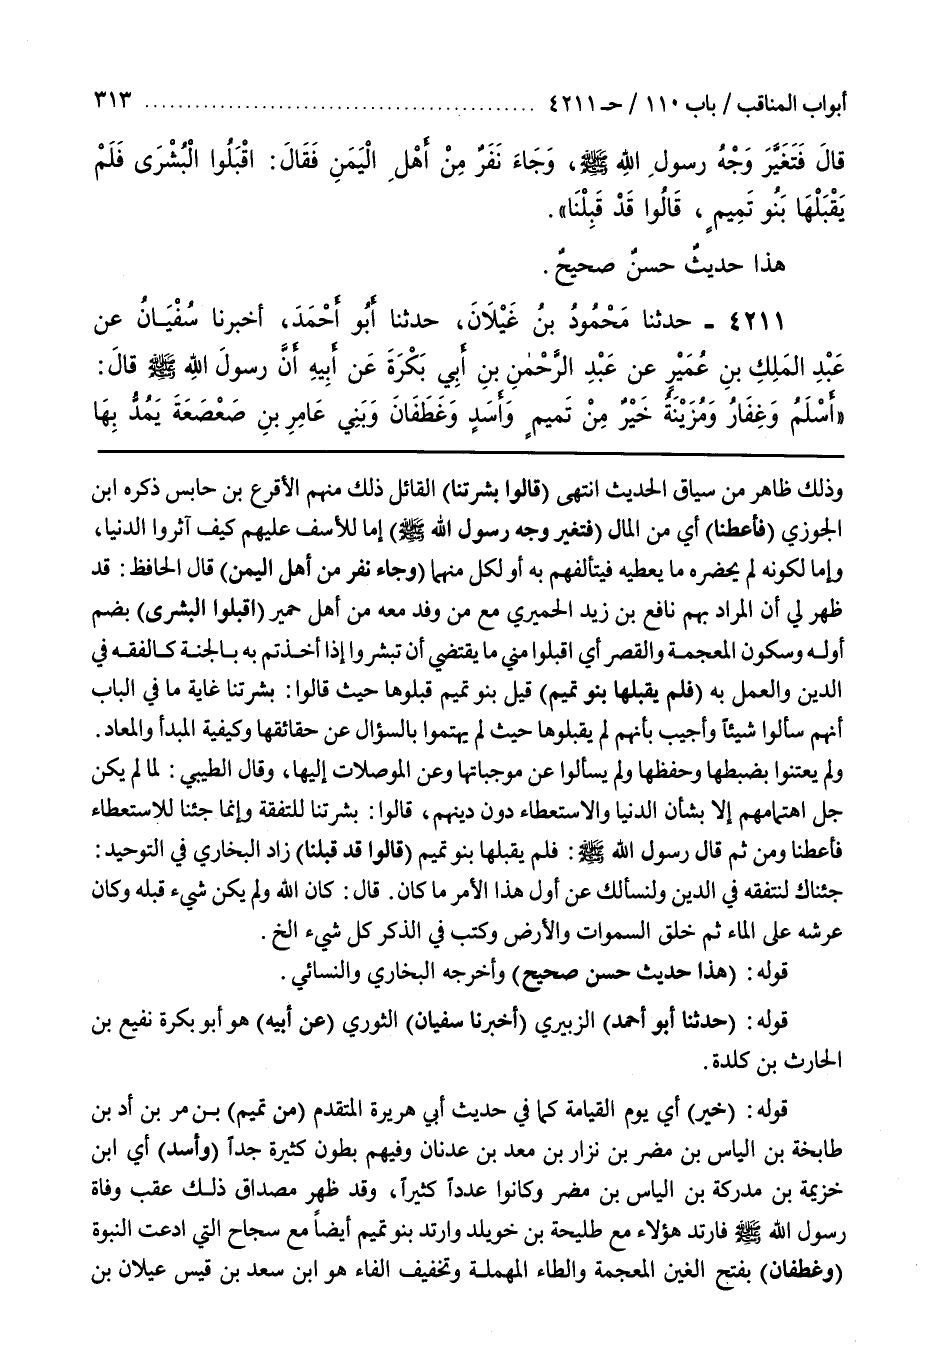 أبواب المناقب / باب ١١٠ / حـ ٤٢١١ ............................................... ٣١٣
قالَ فَتَغَيَّرَ وَجْهُ رسولِ اللهِ ﷺ، وَجَاءَ نَفَرٌ مِنْ أَهْلِ الْيَمَنِ فَقَالَ: اقْبَلُوا الْبُشْرَى فَلَمْ
يَقْبَلْهَا بَنُو تَمِيمٍ، قَالُوا قَدْ قَبِلْنَا».
هذا حديثٌ حسنٌ صحيحٌ.
٤٢١١ ـ حدثنا مَحْمُودُ بنُ غَيْلَانَ، حدثنا أَبُو أَحْمَدَ، أخبرنا سُفْيَـانُ عن
عَبْدِ المَلِكِ بنِ عُمَيْرٍ عن عَبْدِ الرَّحْمٰنِ بنِ أَبِي بَكْرَةَ عَن أَبِيهِ أَنَّ رسولَ اللهِ ﷺ قالَ:
«أَسْلَمُ وَغِفَارُ وَمُزَيْنَةُ خَيْرٌ مِنْ تَميمٍ وَأَسَدٍ وَغَطَفَانَ وَبَنِي عَامِرِ بنِ صَعْصَعَةَ يَمُدُّ بِهَا
وذلك ظاهر من سياق الحديث انتهى (قالوا بشرتنا) القائل ذلك منهم الأقرع بن حابس ذكره ابن
الجوزي (فأعطنا) أي من المال (فتغير وجه رسول الله ﷺ) إما للأسف عليهم كيف آثروا الدنيا،
وإما لكونه لم يحضره ما يعطيه فيتألفهم به أو لكل منهما (وجاء نفر من أهل اليمن) قال الحافظ: قد
ظهر لي أن المراد بهم نافع بن زيد الحميري مع من وفد معه من أهل حمير (اقبلوا البشرى) بضم
أولـه وسكون المعجمـة والقصر أي اقبلوا مني ما يقتضي أن تبشروا إذا أخـذتم به بـالجنـة كـالفقـه في
الدين والعمل به (فلم يقبلها بنو تميم) قيل بنو تميم قبلوها حيث قالوا: بشرتنا غاية ما في الباب
أنهم سألوا شيئاً وأجيب بأنهم لم يقبلوها حيث لم يهتموا بالسؤال عن حقائقها وكيفية المبدأ والمعاد.
ولم يعتنوا بضبطها وحفظها ولم يسألوا عن موجباتها وعن الموصلات إليها، وقال الطيبي: لما لم يكن
جل اهتمامهم إلا بشأن الدنيا والاستعطاء دون دينهم، قالوا: بشرتنا للتفقة وإنما جئنا للاستعطاء
فأعطنا ومن ثم قال رسول الله ﷺ: فلم يقبلها بنو تميم (قالوا قد قبلنا) زاد البخاري في التوحيد:
جئناك لنتفقه في الدين ولنسألك عن أول هذا الأمر ما كان. قال: كان الله ولم يكن شيء قبله وكان
عرشه على الماء ثم خلق السموات والأرض وكتب في الذكر كل شيء الخ.
قوله: (هذا حديث حسن صحيح) وأخرجه البخاري والنسائي.
قوله: (حدثنا أبو أحمد) الزبيري (أخبرنا سفيان) الثوري (عن أبيه) هو أبو بكرة نفيع بن
الحارث بن كلدة.
قوله: (خير) أي يوم القيامة كما في حديث أبي هريرة المتقدم (من تميم) بـن مر بن أد بن
طابخة بن الياس بن مضر بن نزار بن معد بن عدنان وفيهم بطون كثيرة جداً (وأسد) أي ابن
خزيمة بن مدركة بن الياس بن مضر وكانوا عدداً كثيراً، وقد ظهر مصداق ذلـك عقب وفاة
رسول الله ﷺ فارتد هؤلاء مع طليحة بن خويلد وارتد بنو تميم أيضاً مع سجاح التي ادعت النبوة
(وغطفان) بفتح الغين المعجمة والطاء المهملـة وتخفيف الفاء هو ابن سعد بن قيس عيلان بن